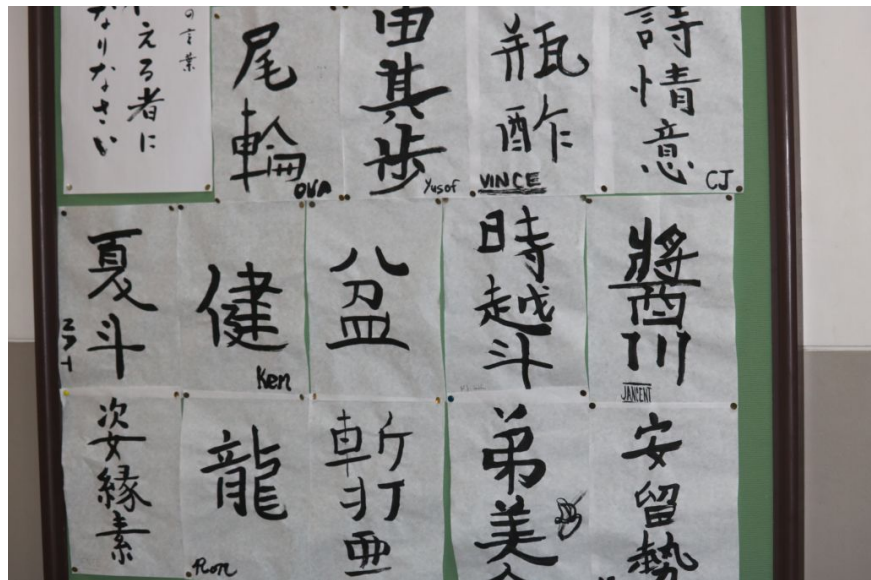 の言葉
える者に
なりなさい
尾輪
OVA
由其歩
Yusof
瓶酢
VINCE
詩情意
CJ
夏斗
健
Ken
盆
時越斗
醬川
JANCENT
姿縁素
龍
Ron
斬打亜
弟美
安留勢